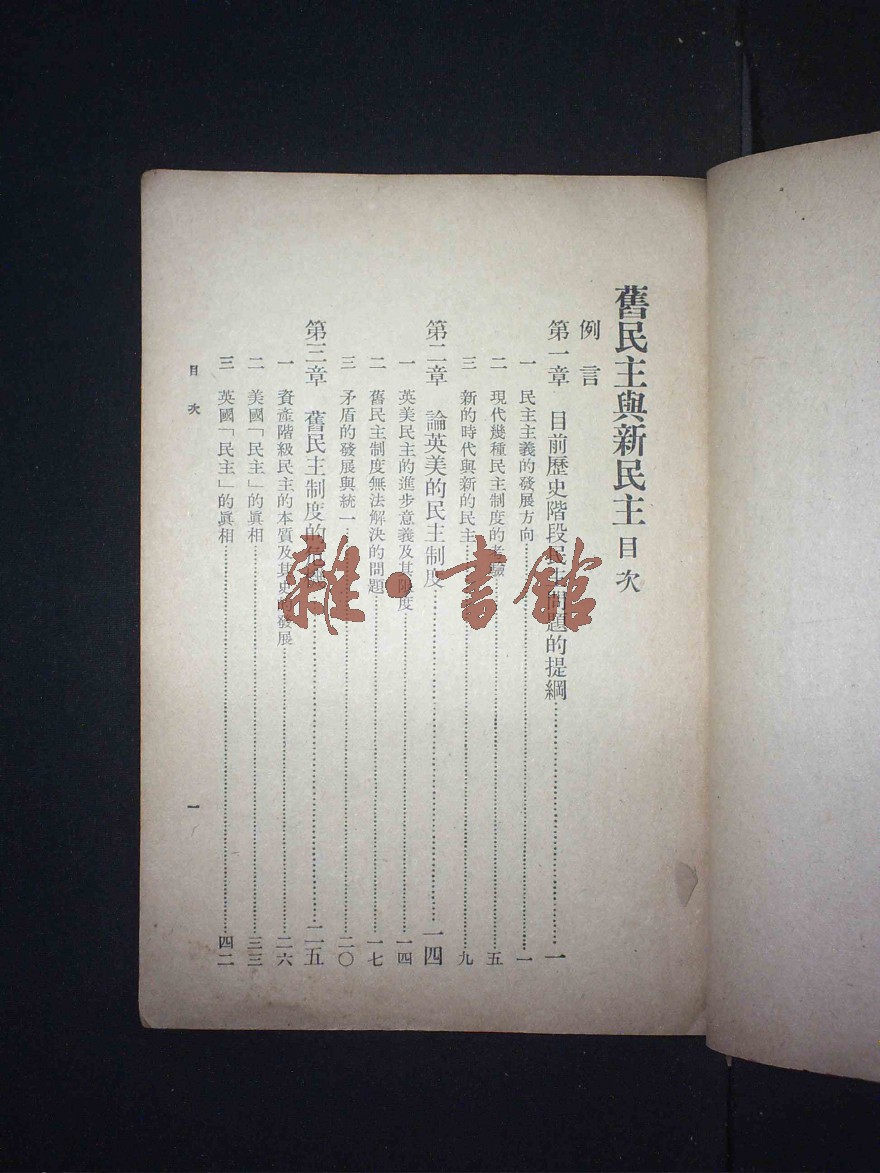 舊民主與新民主 目次
例言
第一章 目前歷史階段民主問題的提綱……一
一 民主主義的發展方向……一
二 現代幾種民主制度的考驗……五
三 新的時代與新的民主……九
第二章 論英美的民主制度……一四
一 英美民主的進步意義及其限度……一四
二 舊民主制度無法解決的問題……一七
三 矛盾的發展與統一……二〇
第三章 舊民主制度的……二五
一 資產階級民主的本質及其史的發展……二六
二 美國「民主」的眞相……三三
三 英國「民主」的眞相……四二
目次
一
雜·書館